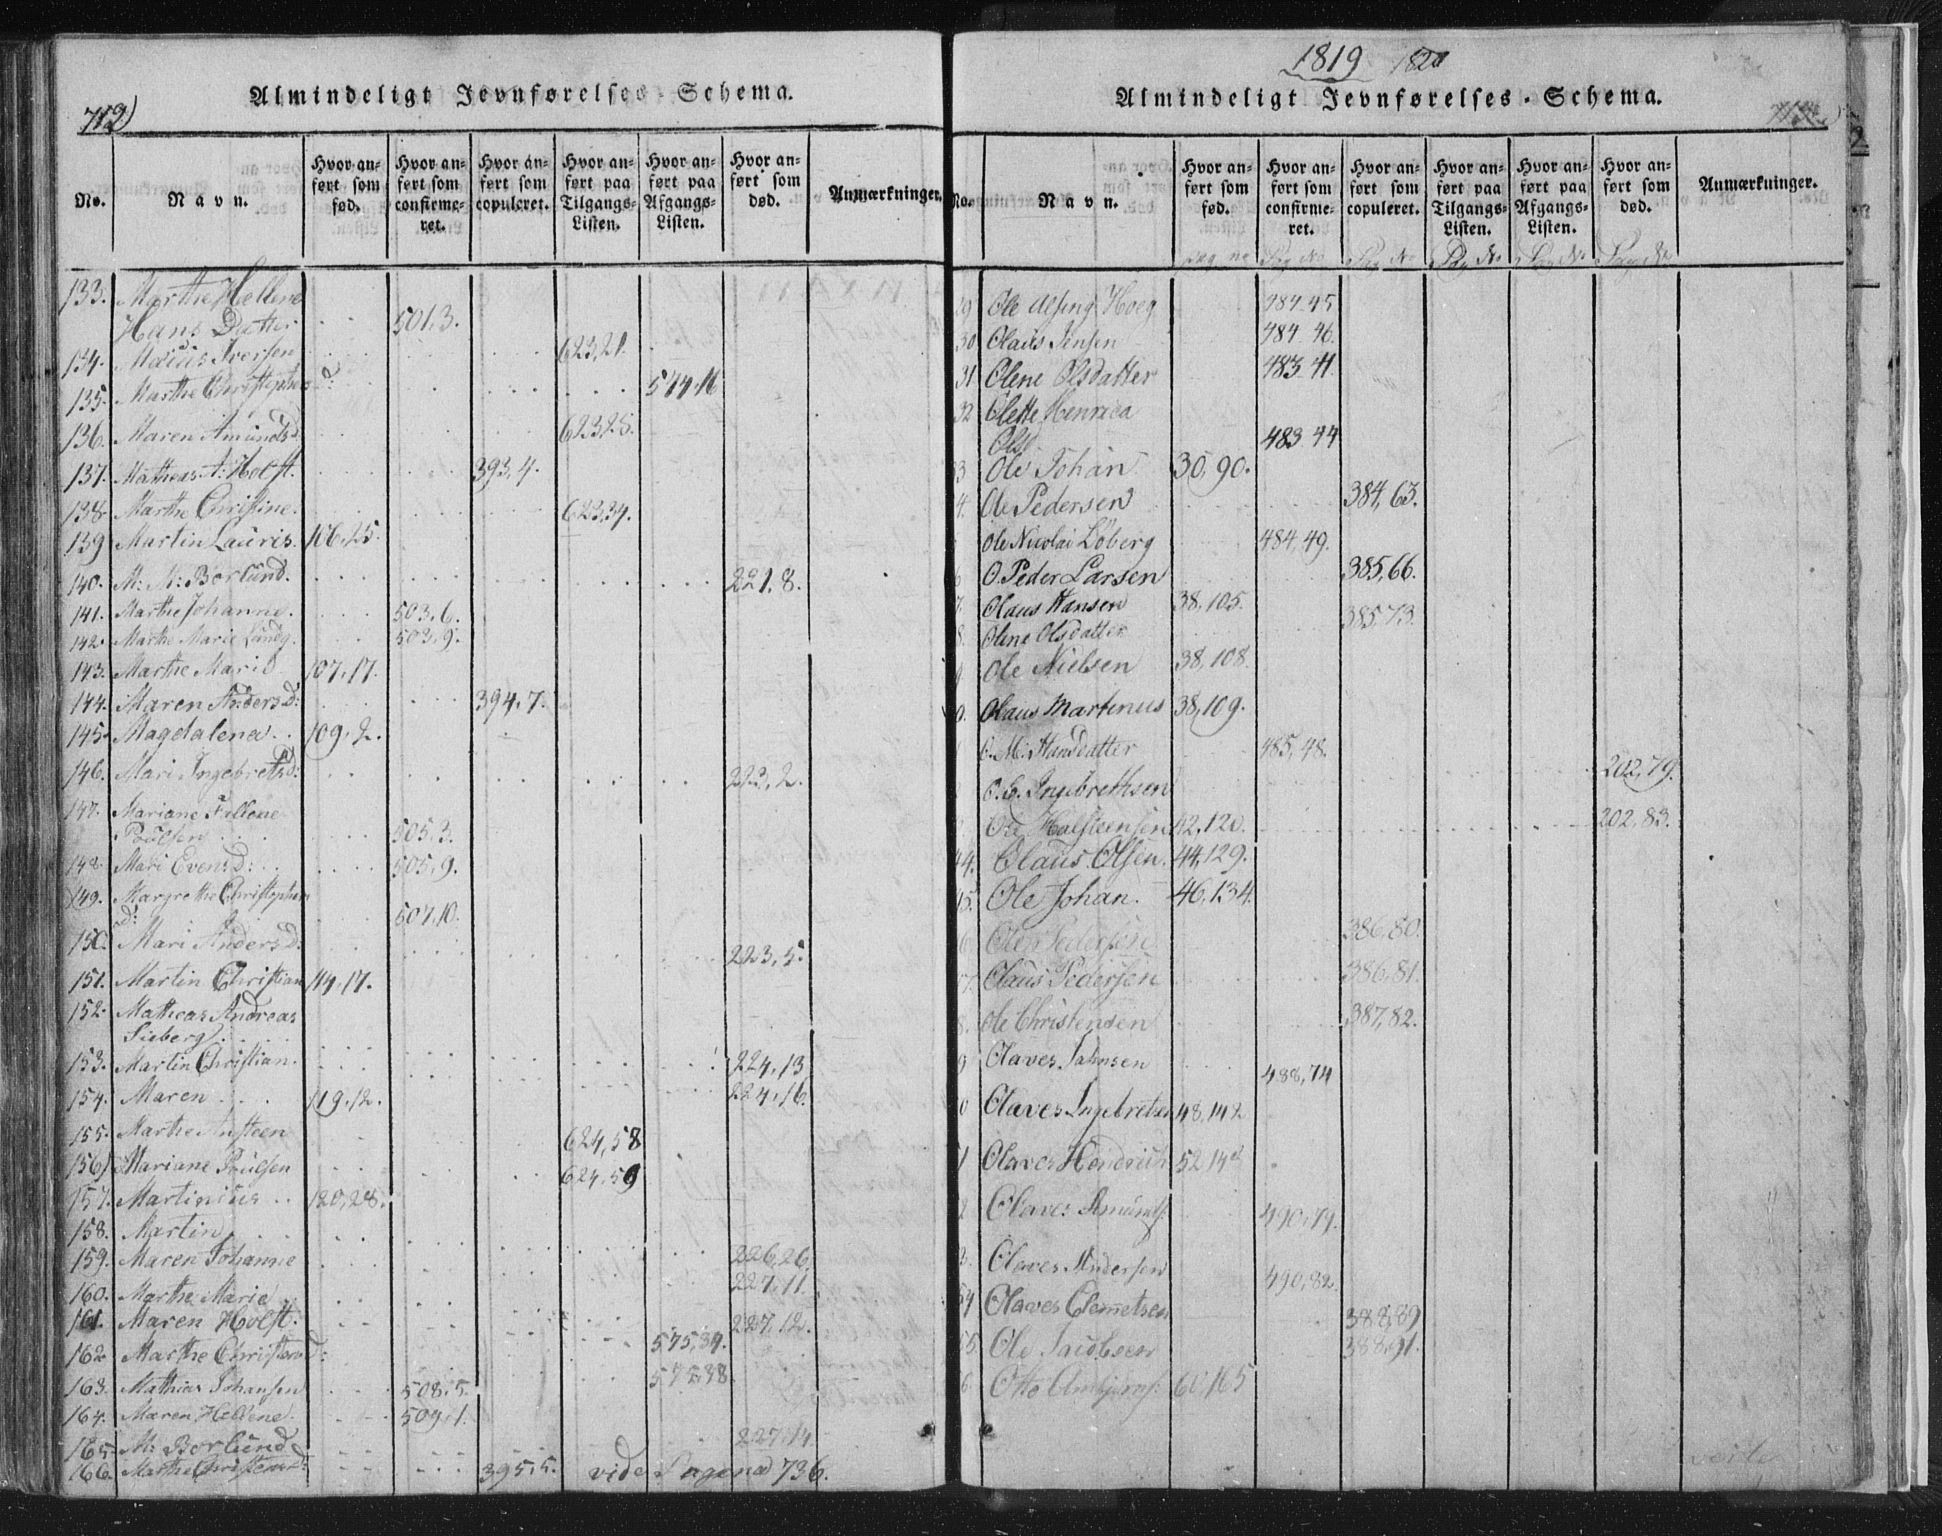 712)
Almindeligt Jevnførelses-Schema.
No. Navn. Hvor anført som fød. Hvor anført som confirmeret. Hvor anført som copuleret. Hvor anført paa Tilgangs-Listen. Hvor anført paa Afgangs-Listen. Hvor anført som død. Anmærkninger.
133. Marthe Hellene
Hans Datter 501,3.
134. Iversen 623,21.
135. Marthe Christophers D: 574,16
136. Maren Amundsd. 623,28.
137. Matheas A: Holst. 393,4.
138. Marthe Christine. 623,34.
139 Martin Lauris. 106,25.
140. M: M: Borlund. 221,8.
141. Marthe Johanne. 503,6.
142. Marthe Marie 503,9.
143. Marthe Marie 107,17.
144. Maren Anders D: 394,7.
145. Magdalena 109,2.
146. Mari Ingebretsd: 223,2.
147. Mariane
Poulsen 505,3.
148. Mari Evens D: 505,9.
149. Margrethe Christophers
d: 507,10.
150. Mari Anders D: 223,5.
151. Martin Christian 114,17.
152. Matheas Andreas
Sieberg
153. Martin Christian. 224,13
154. Maren 119,12. 224,16.
155. Marthe Ansteen 624,58
156) Mariane Poulsen 624,59
157. Martinius 120,28.
158. Martin
159. Maren Johanne 226,26.
160. Marthe Marie 227,11.
161. Maren Holst. 227,12.
162. Marthe Christens D: 575,34.
163. Mathias Johansen 508,5. 575,38.
164. Maren Hellene. 509,1.
165. M: Borlund 227,14
166. Marthe Christensd: 395,5. vide Pagena 736.
1819 1820
Almindeligt Jevnførelses-Schema.
713.
No. Navn. Hvor anført som fød. Hvor anført som confirmeret. Hvor anført som copuleret. Hvor anført paa Tilgangs-Listen. Hvor anført paa Afgangs-Listen. Hvor anført som død. Anmærkninger.
Pag No Pag No Pag No Pag No Pag No Pag No
29 Ole Alsing Hoeg 484 45
30 Claus Jensen 484 46.
31 Olene Olsdatter 483 41
32 Olette Henrica
Olsd 483 44
33 Ole Johan 30,90.
4. Ole Pedersen 384,63.
Ole Nicolai Löberg 484,49.
6 O. Peder Larsen 385,66.
7. Olaus Hansen 38,105.
8. Olene Olsdatter 385,73.
9 Ole Nielsen 38,108.
0. Olaus Martinus 38,109.
O. M. Hansdatter 485,48.
O. E. Ingebrethsen 202,79.
Ole Halsteensen 42,120. 202,83.
44. Claus Olsen. 44,129.
45. Ole Johan. 46,134.
6 Ole Pedersen 386,80.
7. Claus Pedersen 386,81.
8. Ole Christensen 387,82.
9 Olaves 488,74
0 Olaves Ingebretsen 48,142
1 Olaves Hendrich 52,14
2 Olaves Amunds. 490,79.
3. Olaves Andersen 490,82.
54 Olaves Clemetsen 388,89
55. Ole Jacobsen 388,91.
6. Otto 60,165